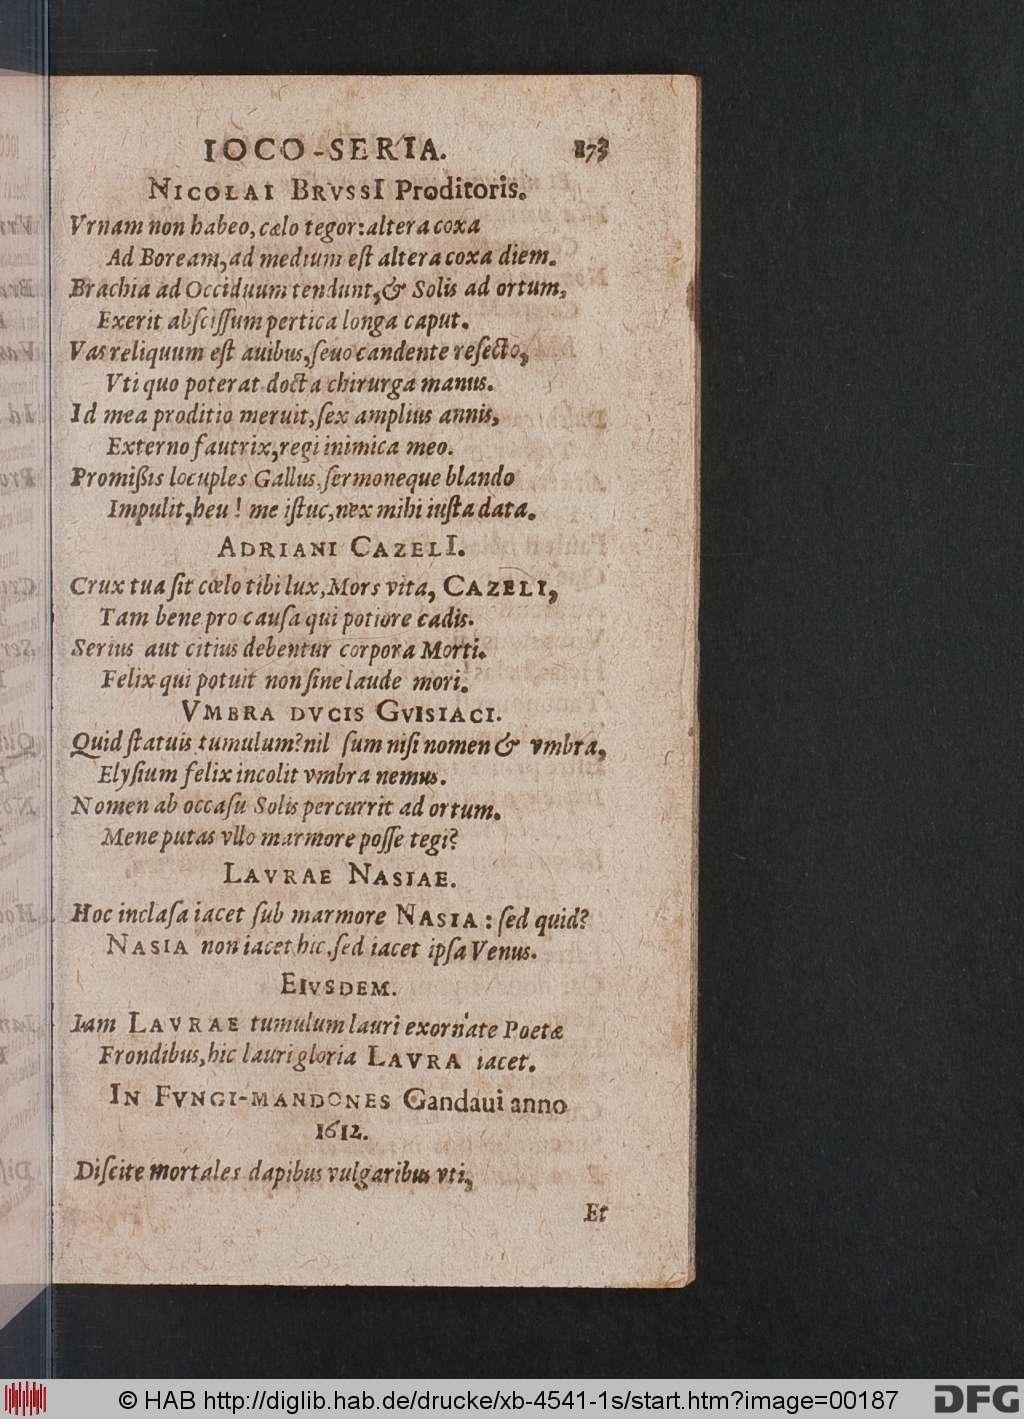 IOCO-SERIA. 173
NICOLAI BRVSSI Proditoris.
Vrnam non habeo, cælo tegor: altera coxa
Ad Boream, ad medium eſt altera coxa diem.
Brachia ad Occiduum tendunt, & Solis ad ortum,
Exerit abſciſſum pertica longa caput.
Vas reliquum eſt auibus, ſeuo candente reſecto,
Vti quo poterat docta chirurga manus.
Id mea proditio meruit, ſex amplius annis,
Externo fautrix, regi inimica meo.
Promißis locuples Gallus, ſermoneque blando
Impulit, heu! me iſtuc, nex mihi iuſta data.
ADRIANI CAZELI.
Crux tua ſit cœlo tibi lux, Mors vita, CAZELI,
Tam bene pro cauſa qui potiore cadis.
Serius aut citius debentur corpora Morti.
Felix qui potuit non ſine laude mori.
VMBRA DVCIS GVISIACI.
Quid ſtatuis tumulum? nil ſum niſi nomen & vmbra,
Elyſium felix incolit vmbra nemus.
Nomen ab occaſu Solis percurrit ad ortum.
Mene putas vllo marmore poſſe tegi?
LAVRAE NASIAE.
Hoc inclaſa iacet ſub marmore NASIA: ſed quid?
NASIA non iacet hic, ſed iacet ipſa Venus.
EIVSDEM.
Iam LAVRAE tumulum lauri exornate Poetæ
Frondibus, hic lauri gloria LAVRA iacet.
IN FVNGI-MANDONES Gandaui anno
1612.
Diſcite mortales dapibus vulgaribus vti,
Et
© HAB http://diglib.hab.de/drucke/xb-4541-1s/start.htm?image=00187
DFG